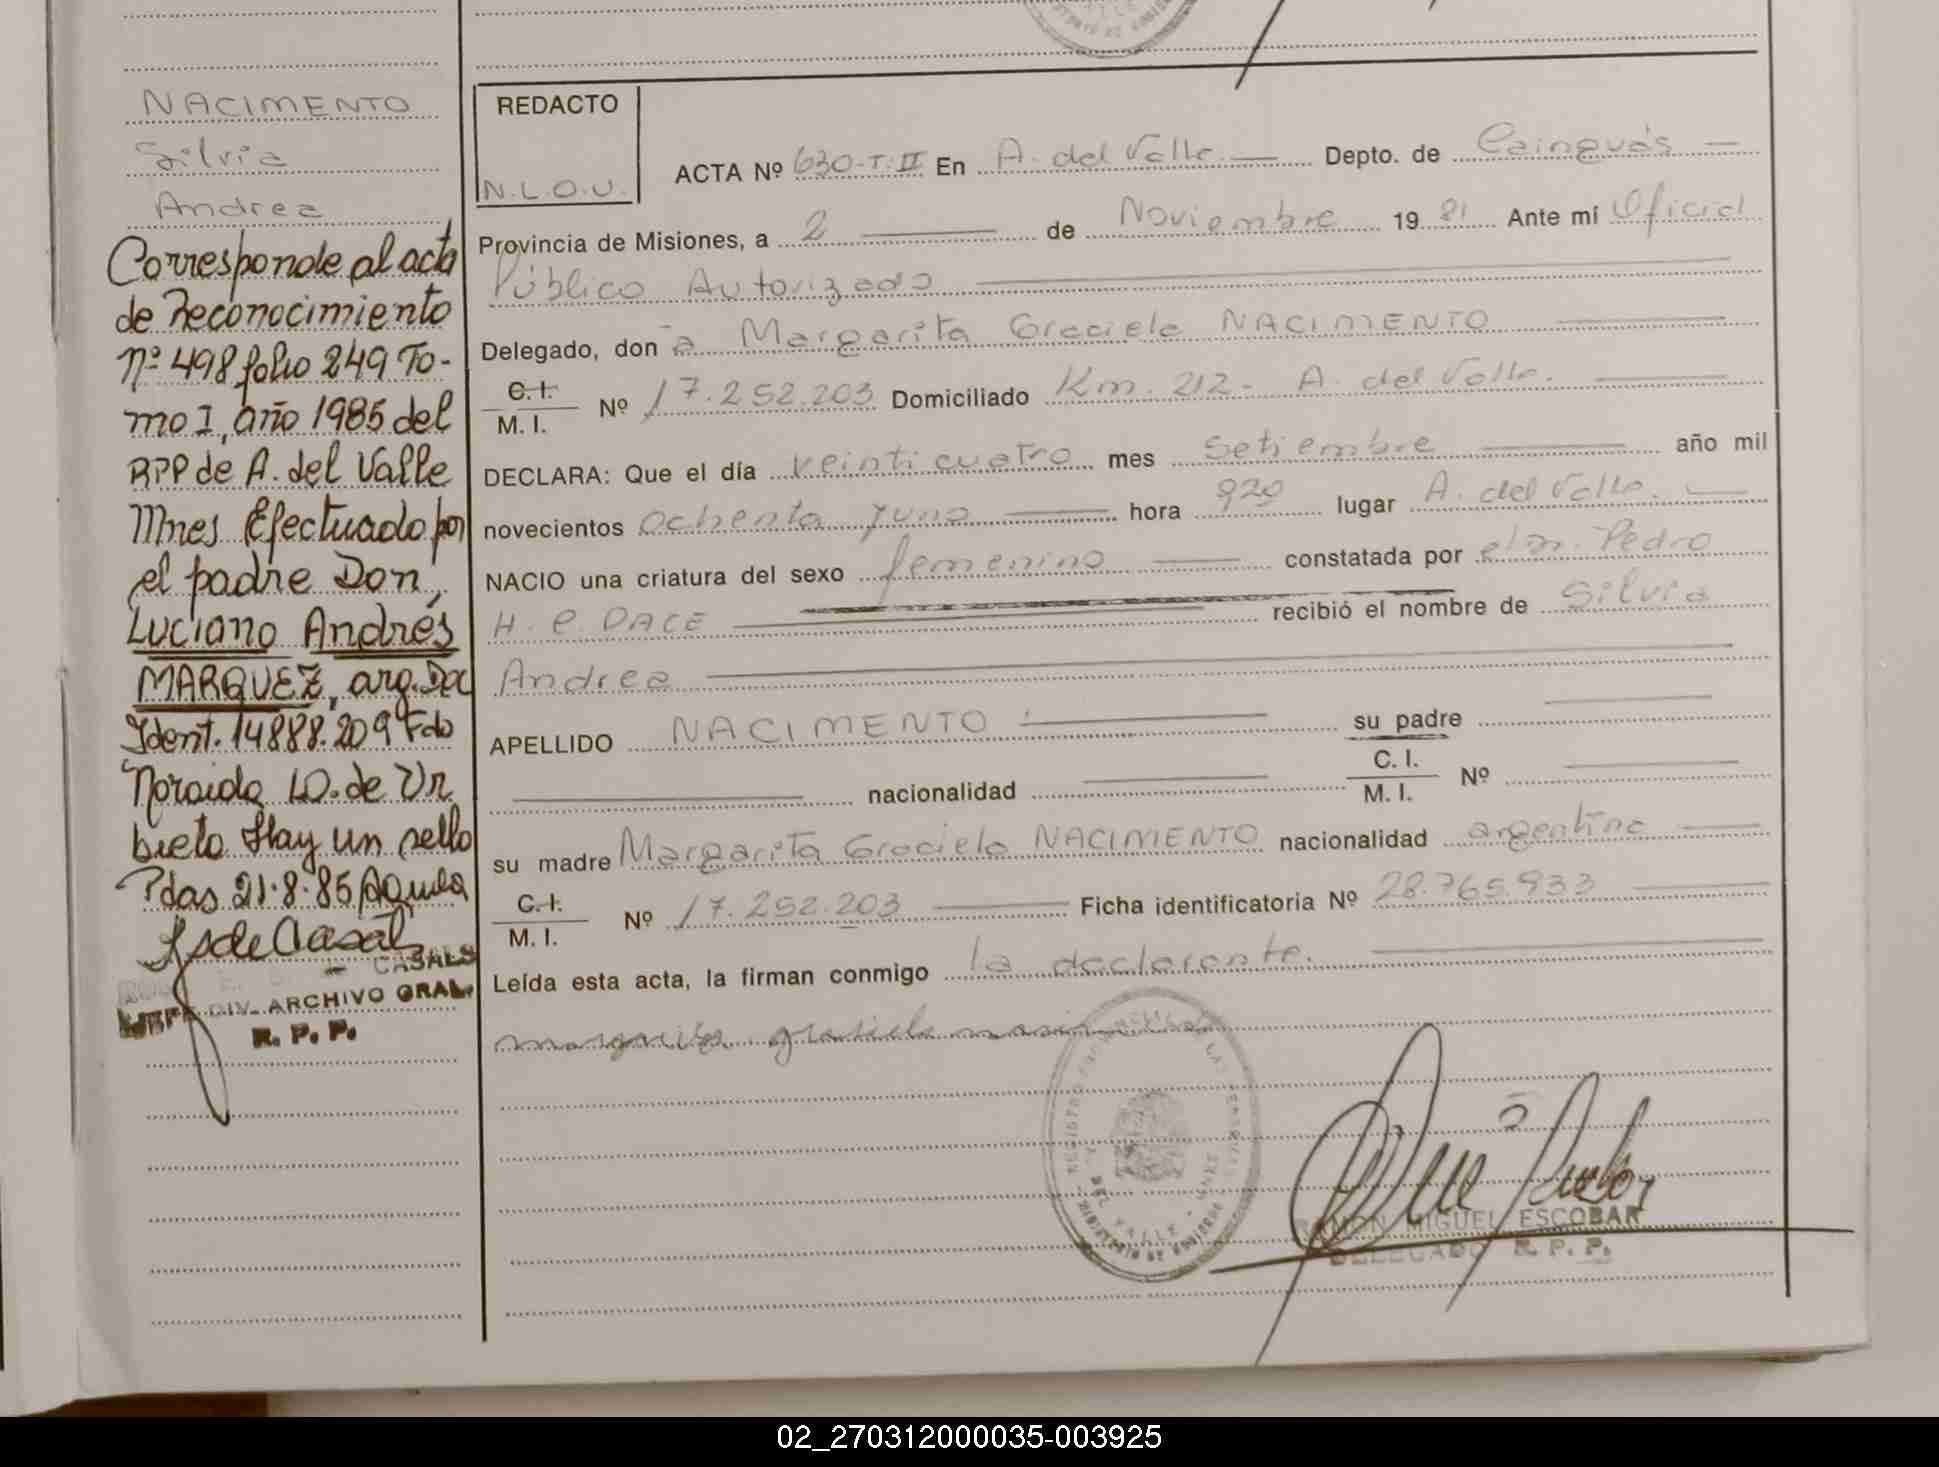 NACIMENTO
Silvia
Andrea
Corresponde al acta
de Reconocimiento
Nº 498 folio 249 To-
mo I, año 1985 del
RPP de A. del Valle
Mnes Efectuado por
el padre Don,
Luciano Andrés
MARQUEZ, arg. Doc
Ident. 14888.209 Fdo
Noraida W. de Ur
bieta Hay un sello
Pdas 21.8.85 Aquila
CASALS
DIV. ARCHIVO GRAL.
R. P. P.
REDACTO
N.L.O.U.
ACTA Nº 630-T.II En A. del Valle Depto. de Cainguás
Provincia de Misiones, a 2 de Noviembre 1981 Ante mí Oficial
Público Autorizado
Delegado, don a Margarita Graciela NACIMENTO
C. I.
M. I. Nº 17.252.203 Domiciliado Km. 212 - A. del Valle.
DECLARA: Que el día veinticuatro mes Setiembre año mil
novecientos ochenta y uno hora 920 lugar A. del Valle.
NACIO una criatura del sexo femenino constatada por el Dr. Pedro
H. C. DACE recibió el nombre de Silvia
Andrea
APELLIDO NACIMENTO su padre
nacionalidad C. I.
M. I. Nº
su madre Margarita Graciela NACIMENTO nacionalidad argentina
C. I.
M. I. Nº 17.252.203 Ficha identificatoria Nº 28.765.933
Leída esta acta, la firman conmigo la declarante.
margarita graciela nacimento
DEL VALLE - MNES
MINISTERIO DE GOBIERNO
RAMON MIGUEL ESCOBAR
DELEGADO R. P. P.
02_270312000035-003925